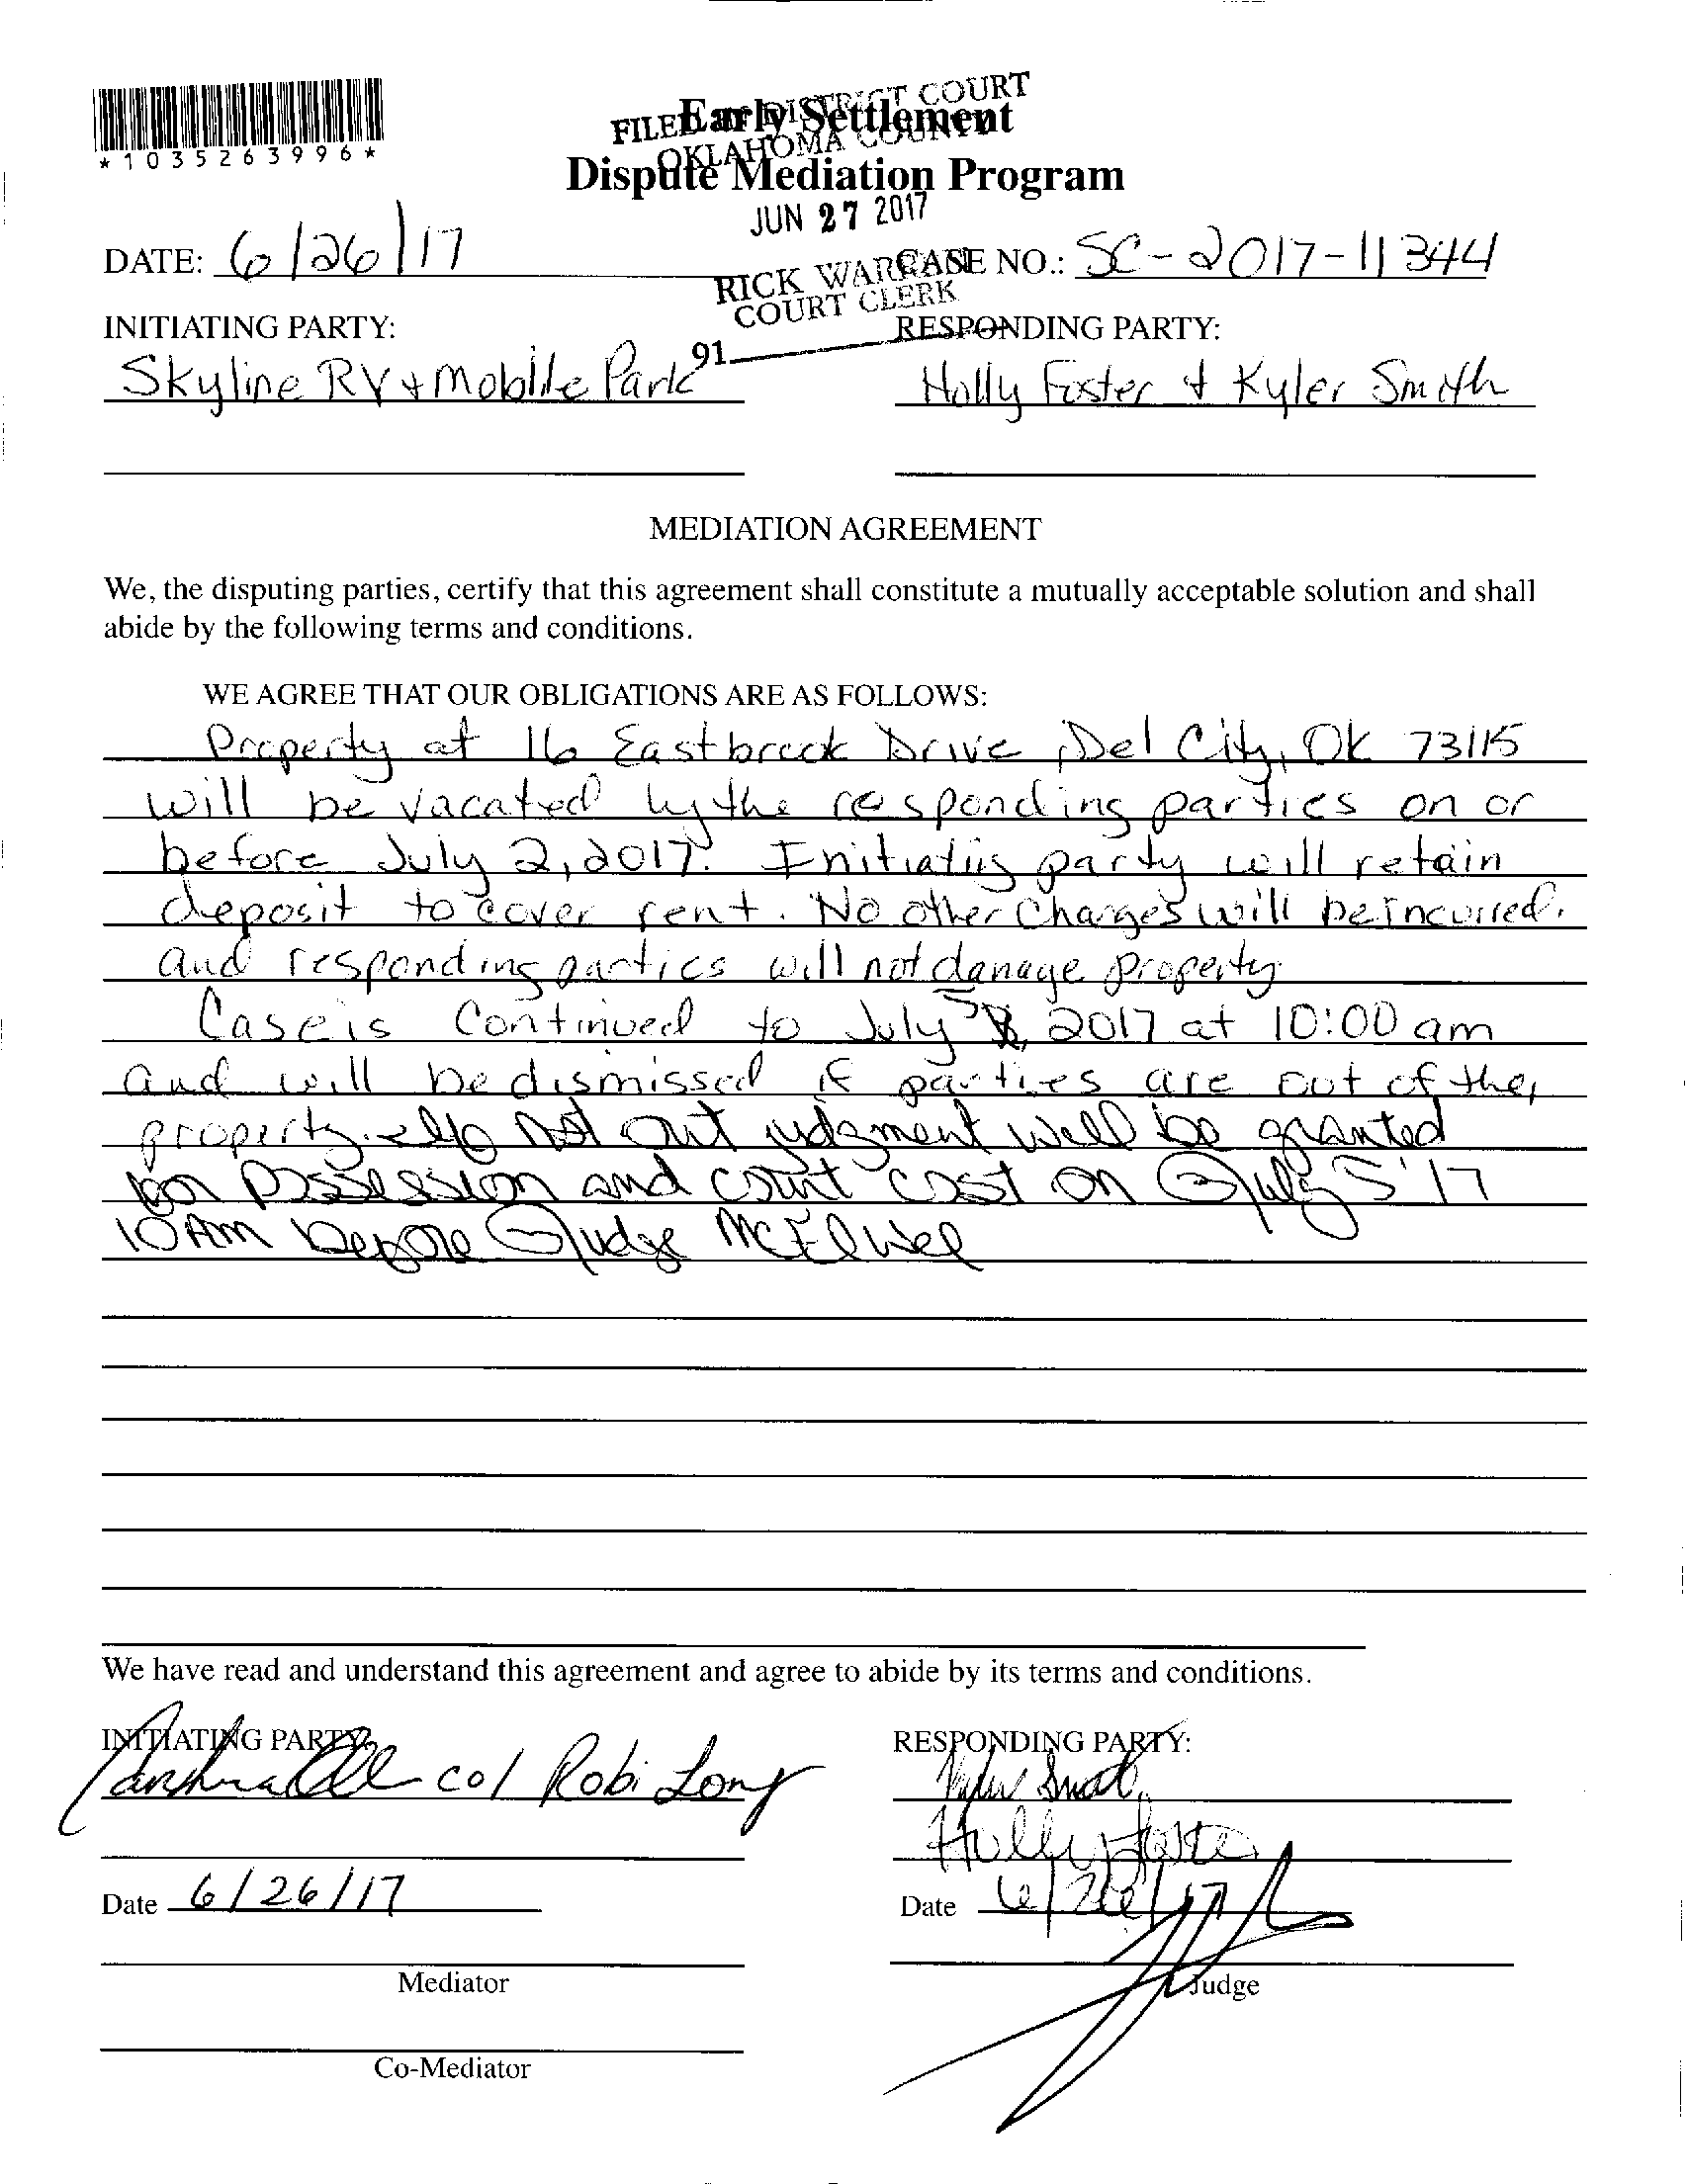 *1035263996*
FILED IN DISTRICT COURT
OKLAHOMA COUNTY
Early Settlement
Dispute Mediation Program
JUN 27 2017
DATE: 6/26/17
CASE NO.: SC-2017-11344
RICK WARREN
COURT CLERK
91
INITIATING PARTY:
RESPONDING PARTY:
Skyline RV + Mobile Park
Holly Foster + Kyler Smith
MEDIATION AGREEMENT
We, the disputing parties, certify that this agreement shall constitute a mutually acceptable solution and shall
abide by the following terms and conditions.
WE AGREE THAT OUR OBLIGATIONS ARE AS FOLLOWS:
Property at 16 Eastbrook Drive, Del City, OK 73115
will be vacated by the responding parties on or
before July 2, 2017. Initiating party will retain
deposit to cover rent. No other charges will be incurred.
and responding parties will not damage property
Case is continued to July 5, 2017 at 10:00 am
and will be dismissed if parties are out of the
property. If not out judgment will be granted
for possession and court cost on July 5 '17
10 AM before Judge McElwee
We have read and understand this agreement and agree to abide by its terms and conditions.
INITIATING PARTY:
RESPONDING PARTY:
co/ Robi Long
Kyler Smith
Holly Foster
Date 6/26/17
Date 6/26/17
Mediator
Judge
Co-Mediator